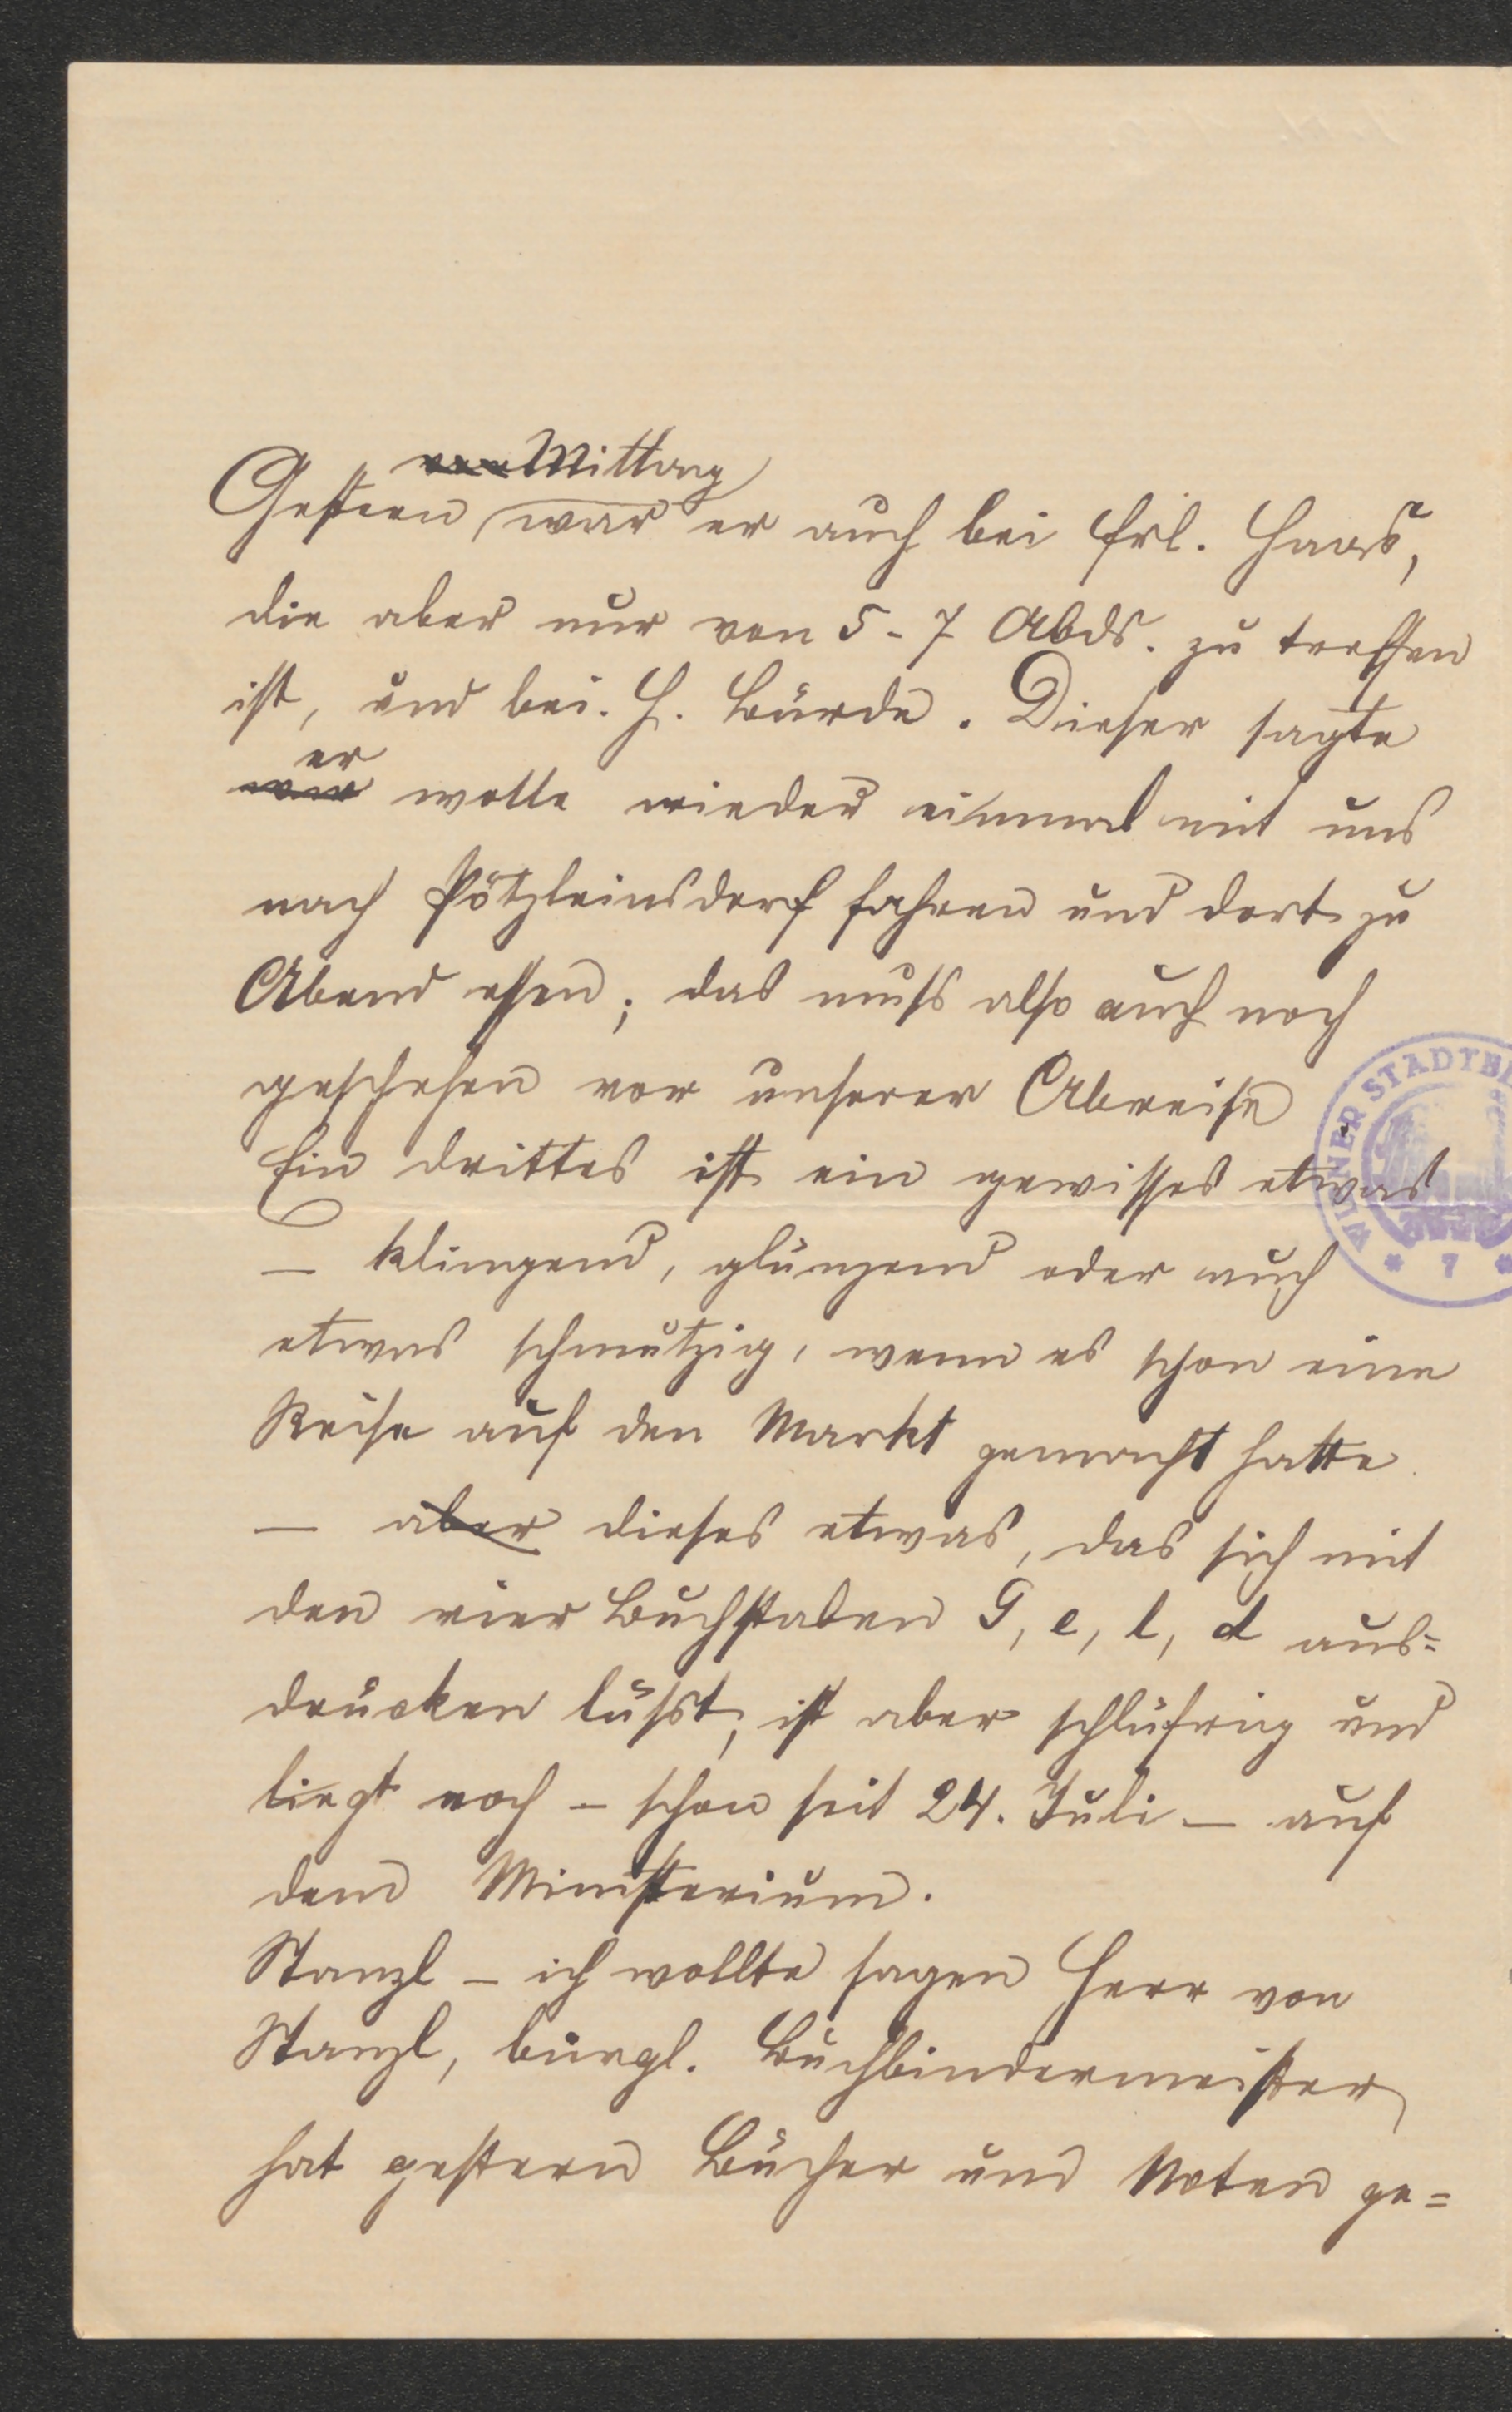 Mittag
Gestern war er auch bei Frl. Haas,
die aber nur von 5-7 Abds. zu treffen
ist, und bei. H. Bürde. Dieser sagte
er
wolle wieder einmal mit uns
nach Pötzleinsdorf fahren und dort zu
Abend essen; das muss also auch noch
geschehen vor unserer Abreise
Ein drittes ist ein gewisses etwas
– klingend, glänzend oder auch
etwas schmutzig, wenn es schon eine
Reise auf den Markt gemacht hatte
– aber dieses etwas, das sich mit
den vier Buchstaben G, e, l, d aus=
drücken lässt, ist aber schläfrig und
liegt noch – schon seit 24. Juli – auf
dem Ministerium.
Stanzl – ich wollte sagen Herr von
Stanzl, bürgl. Buchbindermeister
hat gestern Bücher und Noten ge=
WIENER STADTB
* 7 *